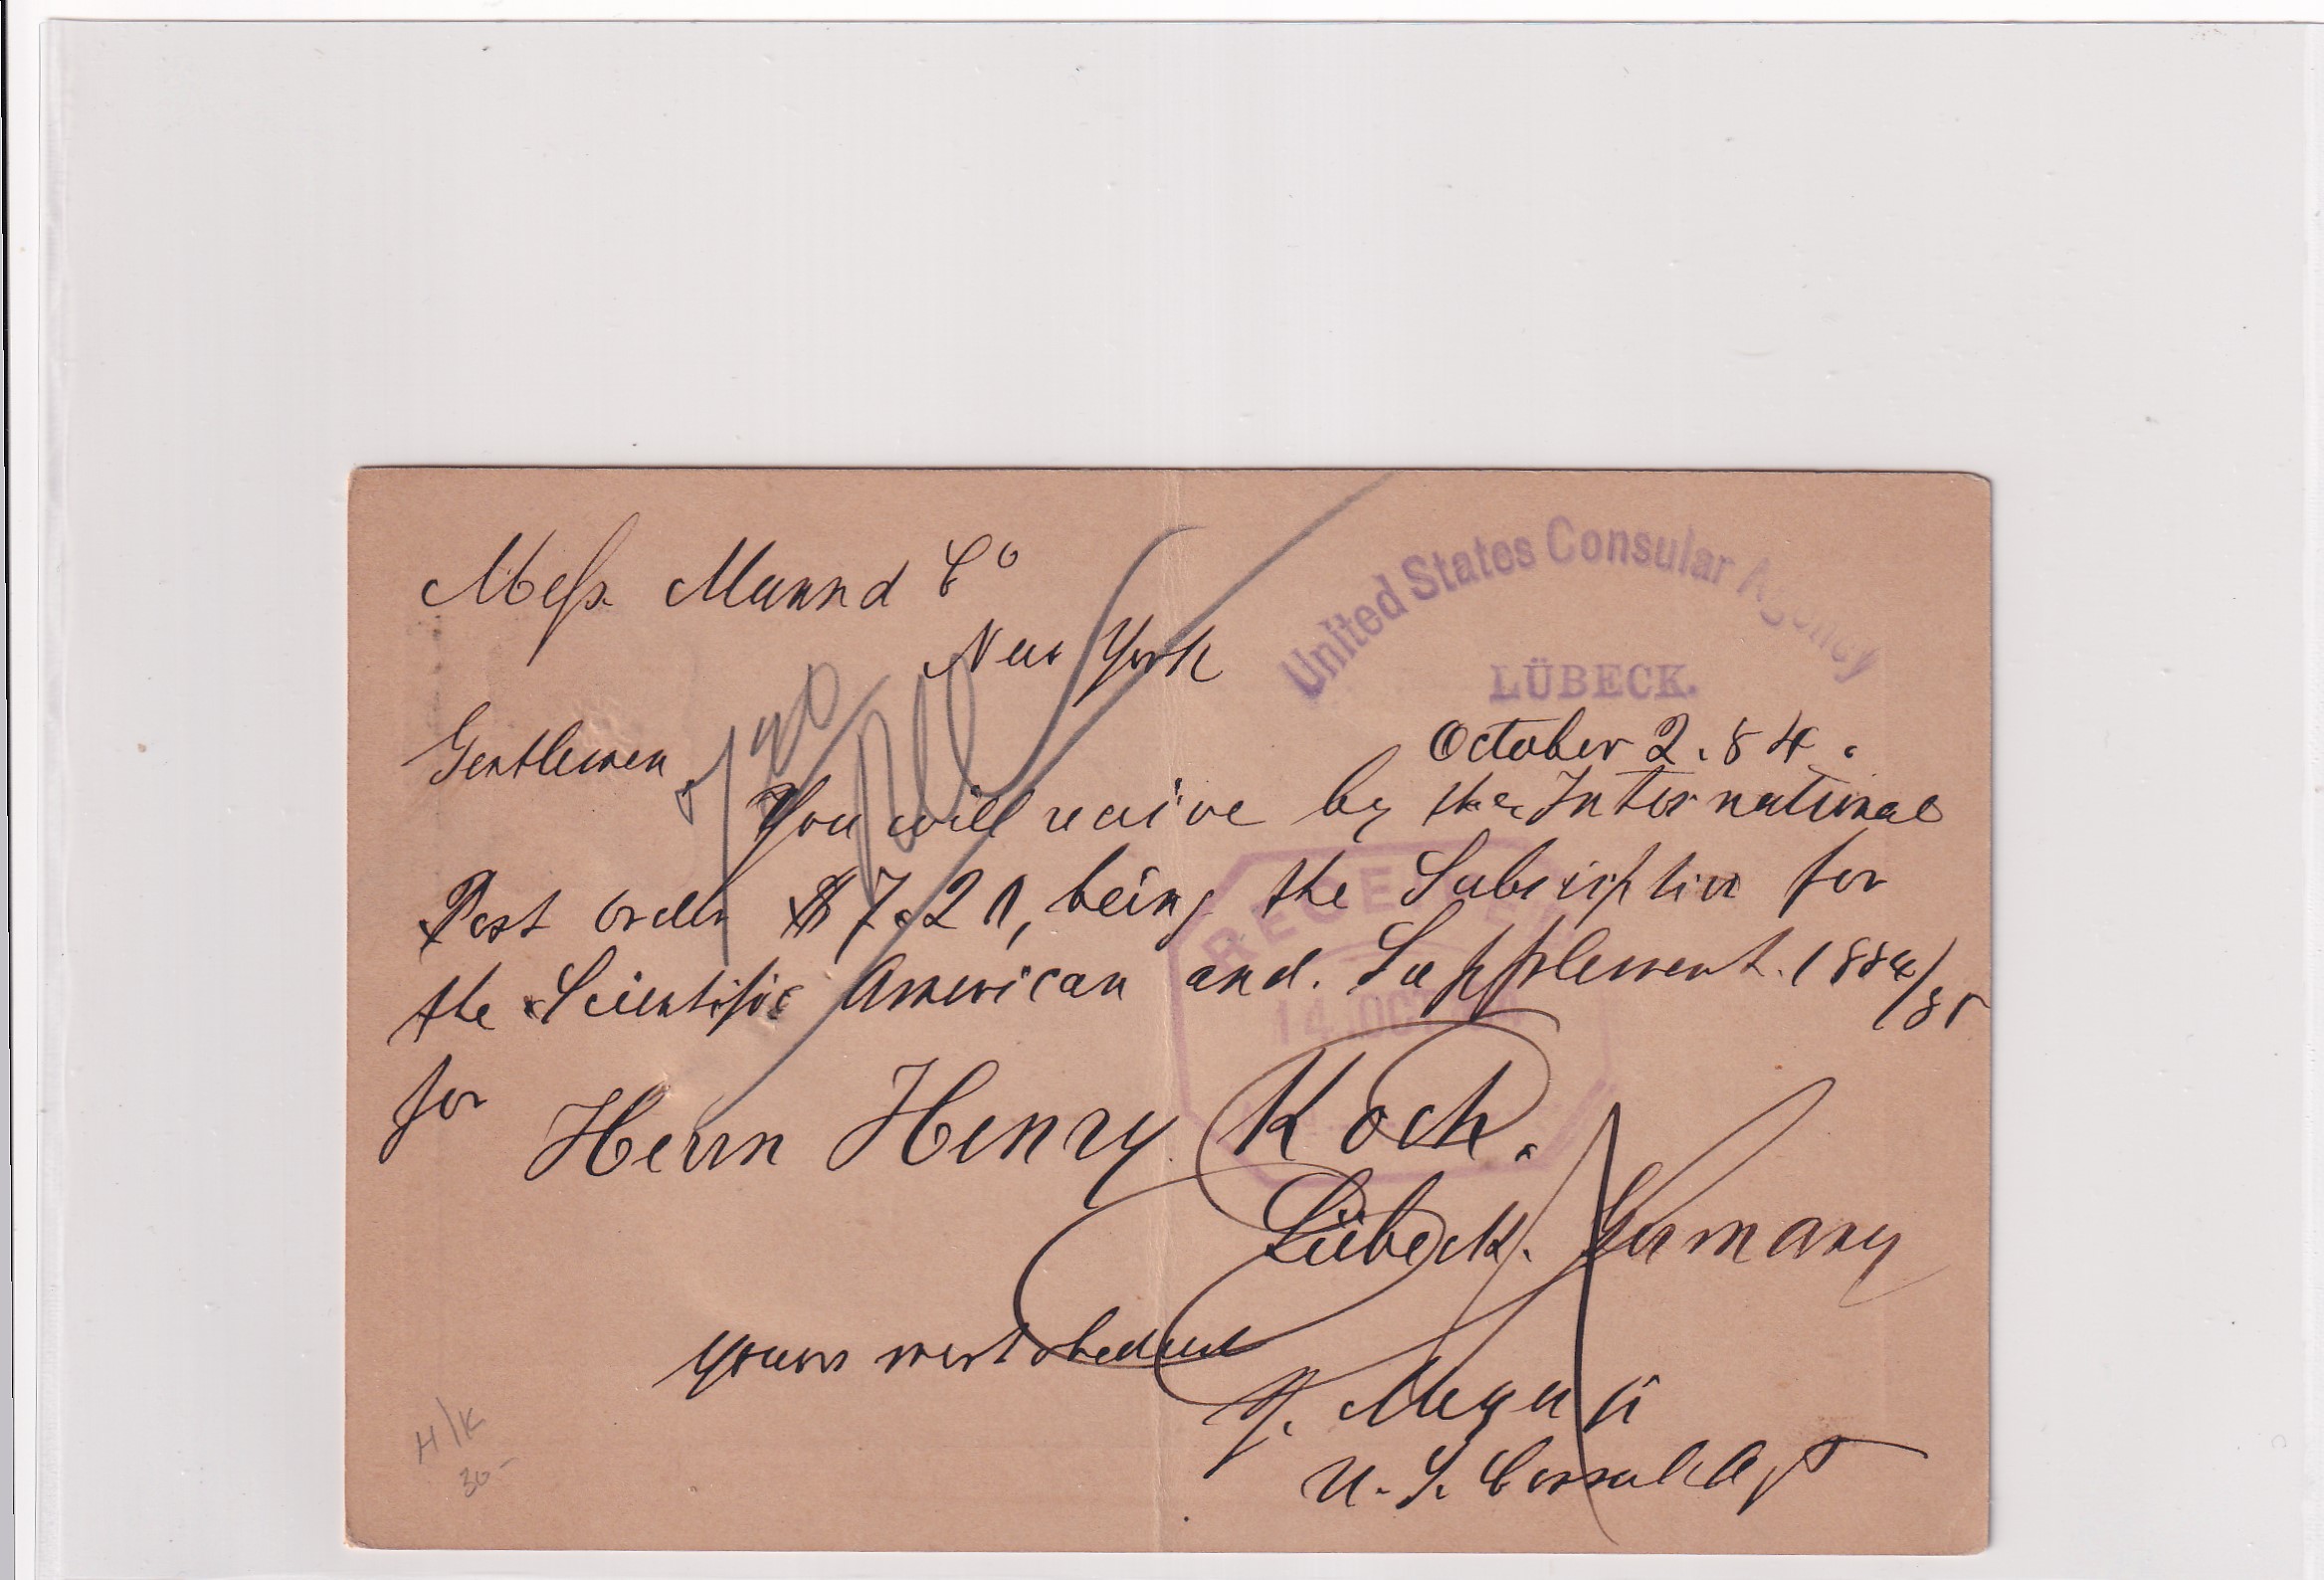 Mess. Munn & Co
New York
United States Consular Agency
LÜBECK.
October 2. 84.
Gentlemen
You will recive by the International
Post order $ 7.20, being the Subscription for
the Scientific American and. Supplement. 1884/85
for
Herrn Henry Koch.
Lübeck. Germany
yours most obedient
U. S. Consul Agt
RECEIVED
14 OCT
H/K
30-